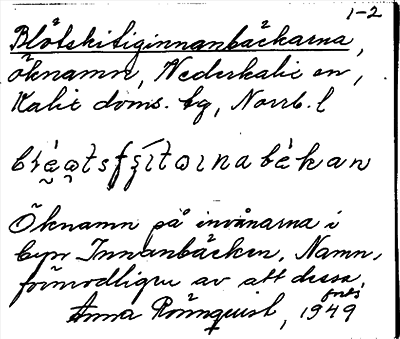 1-2
Blötskitiginnanbäckarna,
öknamn, Nederkalix sn,
Kalix doms. bg, Norrb. l
Öknamn på invånarna i
byn Innanbäcken. Namn,
förmodligen av att dessa,
forts
Anna Rönnquist, 1949